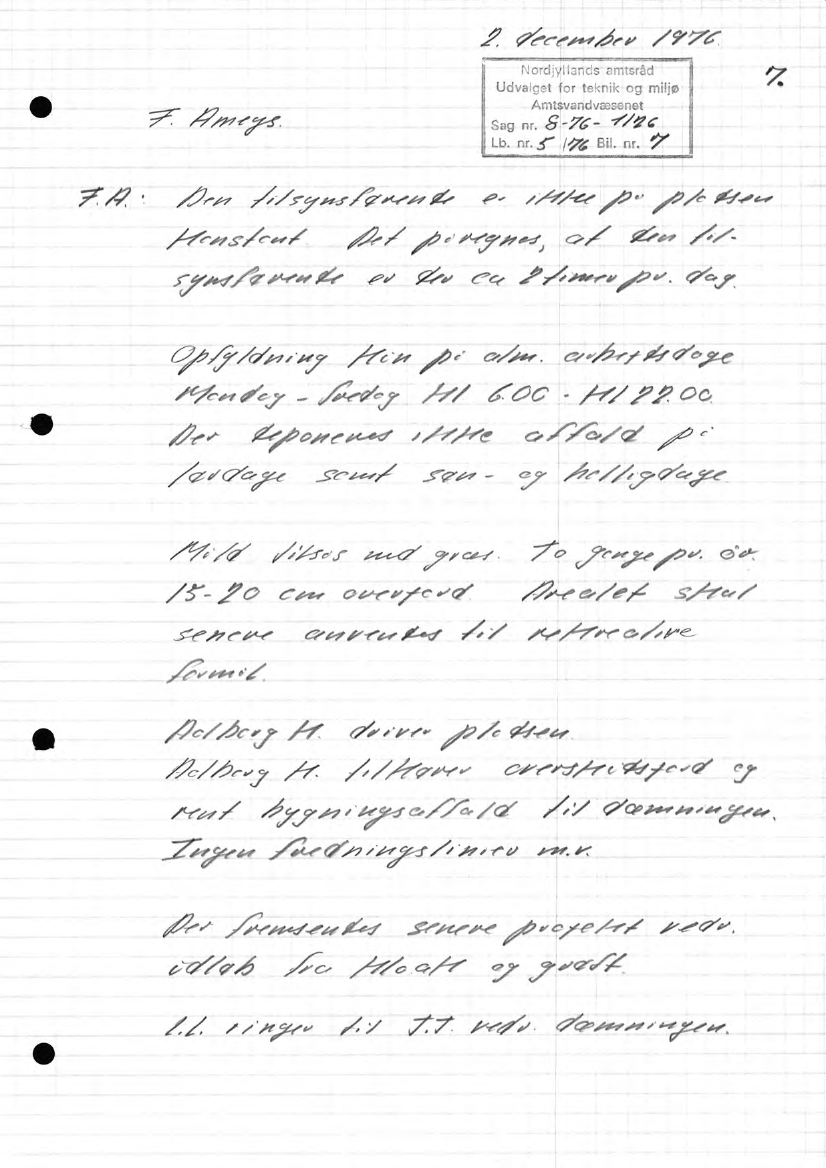 2. december 1976.
Nordjyllands amtsråd
Udvalget for teknik og miljø
Amtsvandvæsenet
Sag nr. 8-76-1/26
Lb. nr. 5 /76 Bil. nr. 7
7.
F. Ameys.
F.A.: Den tilsynsførende er ikke på pladsen
konstant. Det påregnes, at den til-
synsførende er der ca 2 timer pr. dag.
Opfyldning kun på alm. arbejdsdage
Mandag - fredag kl 6.00 - kl 22.00.
Der deponeres ikke affald på
lørdage samt søn- og helligdage.
Muld tilsås med græs. To gange pr. år.
15-20 cm overjord. Arealet skal
senere anvendes til rekreative
formål.
Aalborg K. driver pladsen.
Aalborg K. tilkører overskudsjord og
rent bygningsaffald til dæmningen.
Ingen fredningslinier m.v.
Der fremsendes senere projekt vedr.
udløb fra kloak og grøft.
ringer til J.J. vedr. dæmningen.